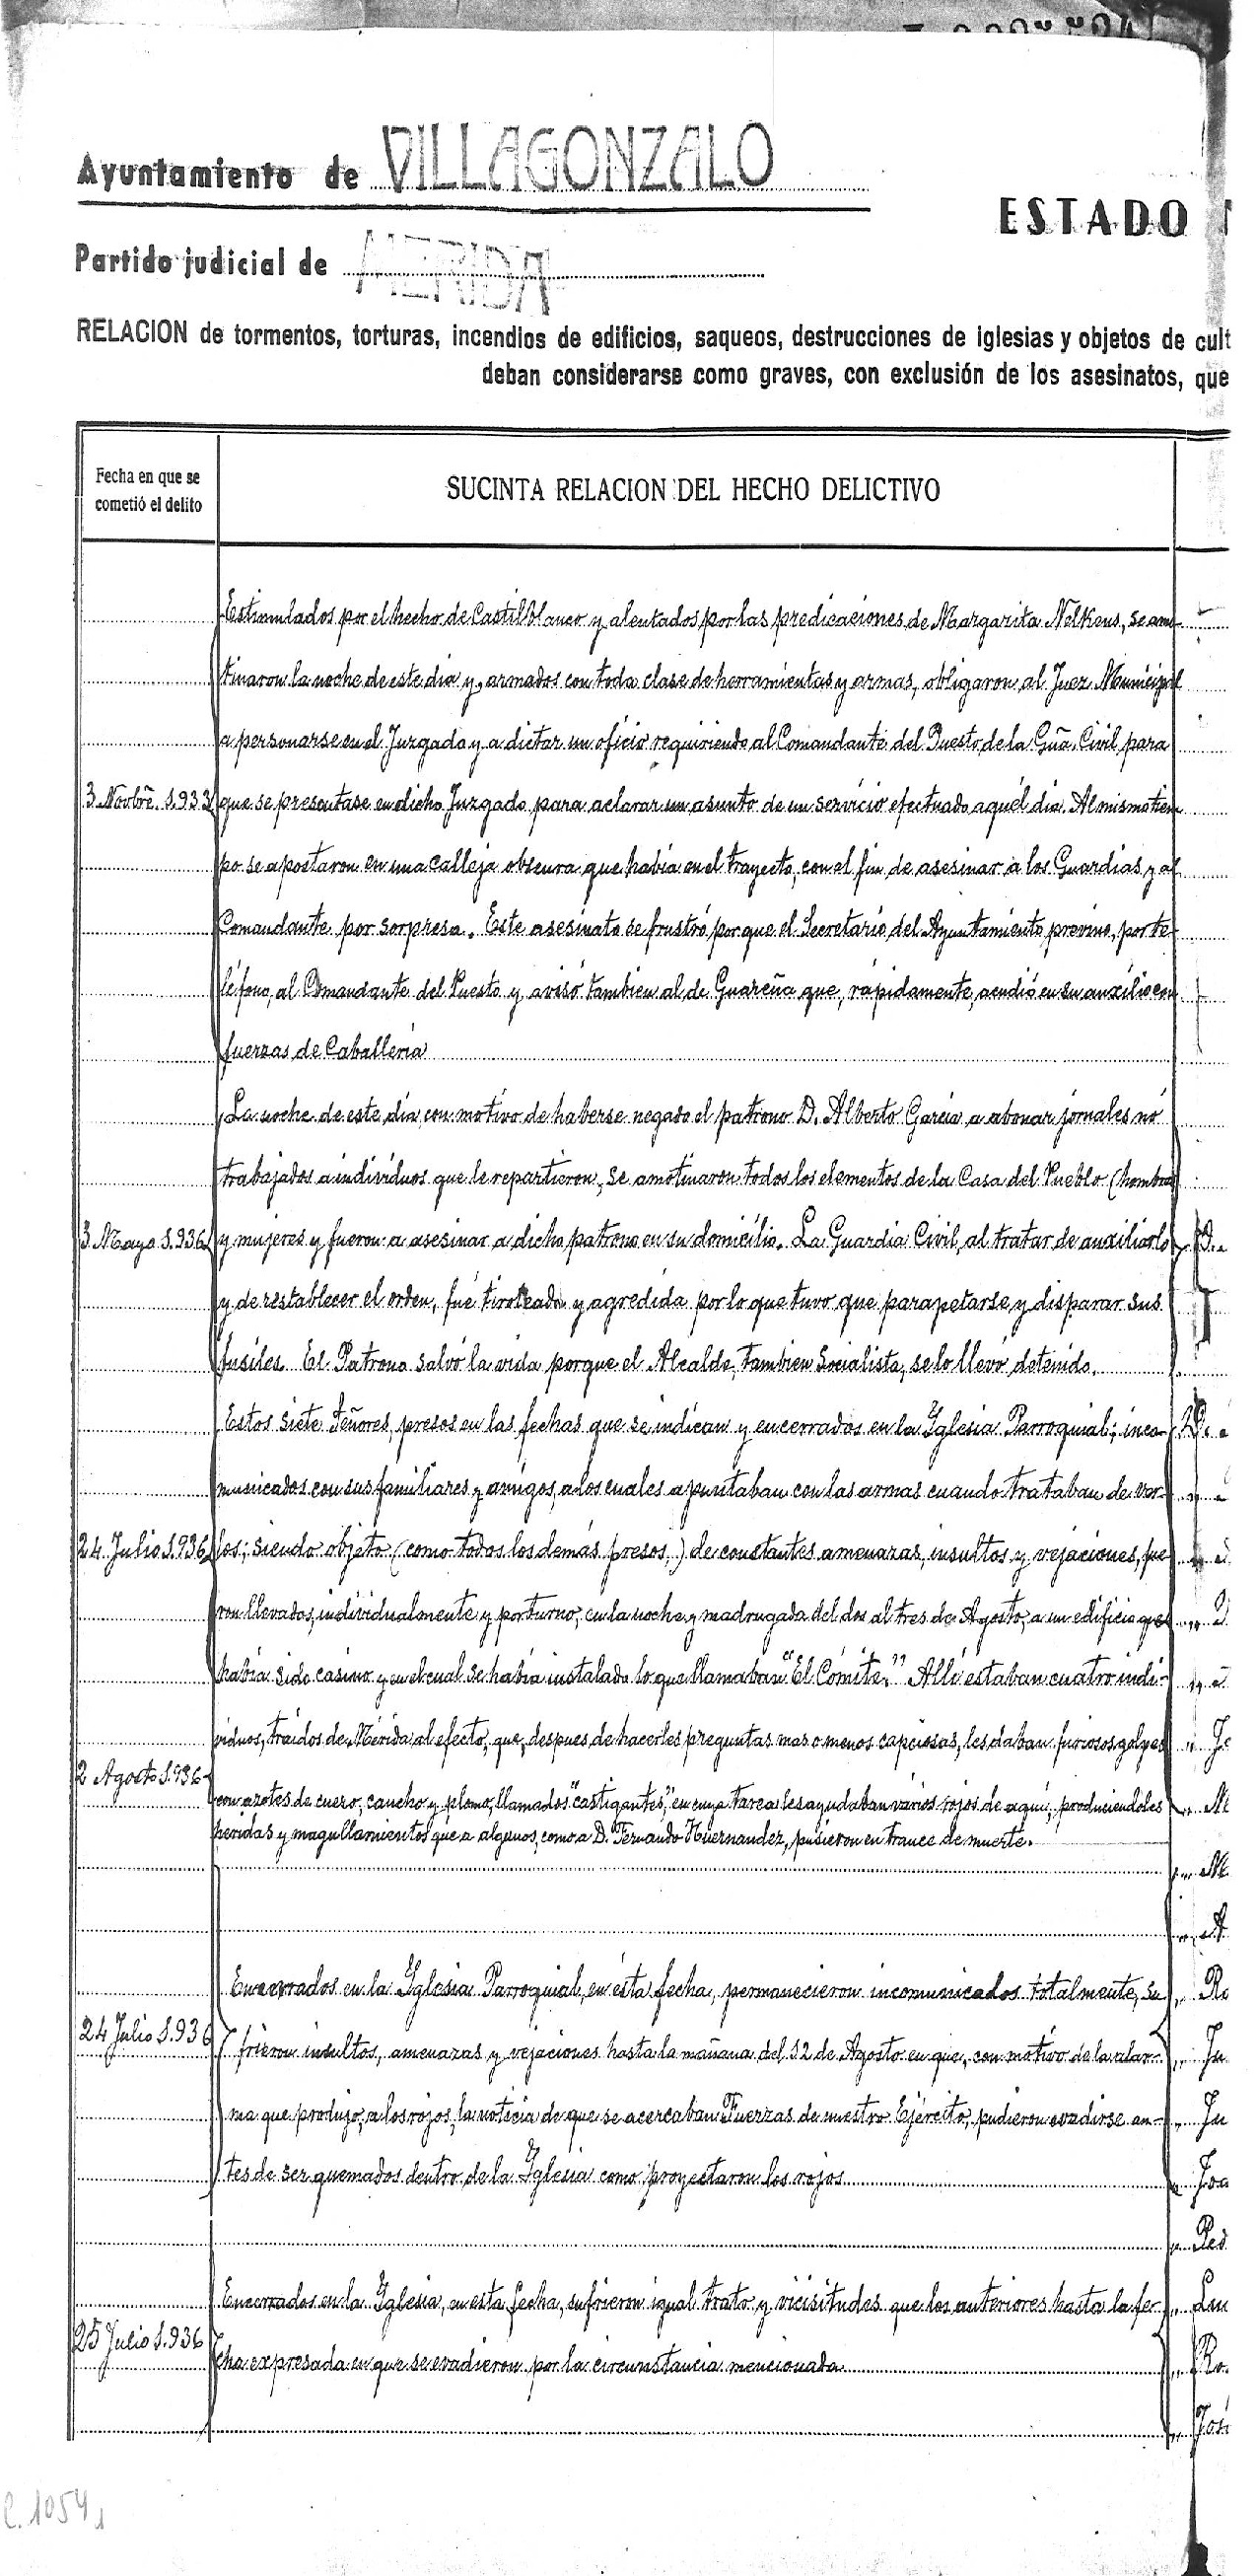 Ayuntamiento de VILLAGONZALO
ESTADO
Partido judicial de MERIDA
RELACION de tormentos, torturas, incendios de edificios, saqueos, destrucciones de iglesias y objetos de cult
deban considerarse como graves, con exclusión de los asesinatos, que
Fecha en que se
cometió el delito
SUCINTA RELACION DEL HECHO DELICTIVO
Estimulados por el hecho de Castilblanco y alentados por las predicaciones de Margarita Nelkens, se amo-
tinaron la noche de este dia y, armados con toda clase de herramientas y armas, obligaron al Juez Municipal
a personarse en el Juzgado y a dictar un oficio requiriendo al Comandante del Puesto de la Guª. Civil para
3 Novbrẽ. 1.933 que se presentase en dicho Juzgado para aclarar un asunto de un servicio efectuado aquél dia. Al mismo tiem
po se apostaron en una calleja obscura que habia en el trayecto, con el fin de asesinar a los Guardias y al
Comandante por sorpresa. Este asesinato se frustró porque el Secretario del Ayuntamiento previno, por te-
léfono, al Comandante del Puesto y avisó tambien al de Guareña que, rápidamente, acudió en su auxilio con
fuerzas de Caballeria
La noche de este dia, con motivo de haberse negado el patrono D. Alberto Garcia a abonar jornales nó
trabajados a individuos que le repartieron, se amotinaron todos los elementos de la Casa del Pueblo (hombres
3 Mayo 1.936 y mujeres y fueron a asesinar a dicho patrono en su domicilio. La Guardia Civil, al tratar de auxiliarlo D.
y de restablecer el orden, fué tiroteada y agredida por lo que tuvo que parapetarse y disparar sus
fusiles. El Patrono salvó la vida porque el Alcalde, tambien Socialista, se lo llevó detenido.
Estos siete Señores, presos en las fechas que se indican y encerrados en la Iglesia Parroquial; inco- D.
municados con sus familiares y amigos, a los cuales apuntaban con las armas cuando trataban de ver-
24 Julio 1.936 los; siendo objeto (como todos los demás presos,) de constantes amenazas, insultos y vejaciones, fue
ron llevados, individualmente y por turno, en la noche y madrugada del dos al tres de Agosto, a un edificio que
habia sido casino y en el cual se habia instalado lo que llamaban "El Cómite." Allí estaban cuatro indi-
viduos, traidos de Mérida al efecto, que, despues de hacerles preguntas mas o menos capciosas, les daban furiosos golpes
2 Agosto 1.936
con azotes de cuero, caucho y plomo, llamados "castigantes", en cuya tarea les ayudaban vários rojos de aquí, produciendoles
heridas y magullamientos que a algunos, como a D. Fernando Huernandez, pusieron en trance de muerte.
Encerrados en la Iglesia Parroquial, en ésta fecha, permanecieron incomunicados totalmente, su
24 Julio 1.936 frieron insultos, amenazas y vejaciones hasta la mañana del 12 de Agosto en que, con motivo de la alar- Ju
ma que produjo, a los rojos, la noticia de que se acercaban Fuerzas de nuestro Ejército, pudieron evadirse an- Ju
tes de ser quemados dentro de la Iglesia como proyectaron los rojos Joa
Ped
Encerrados en la Iglesia, en esta fecha, sufrieron igual trato y vicisitudes que los anteriores hasta la fe-
25 Julio 1.936 cha expresada en que se evadieron por la circunstancia mencionada Ro
José
C. 1054,